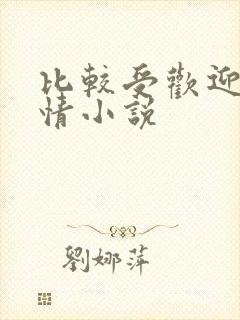 比較受歡迎
情小說
劉娜萍